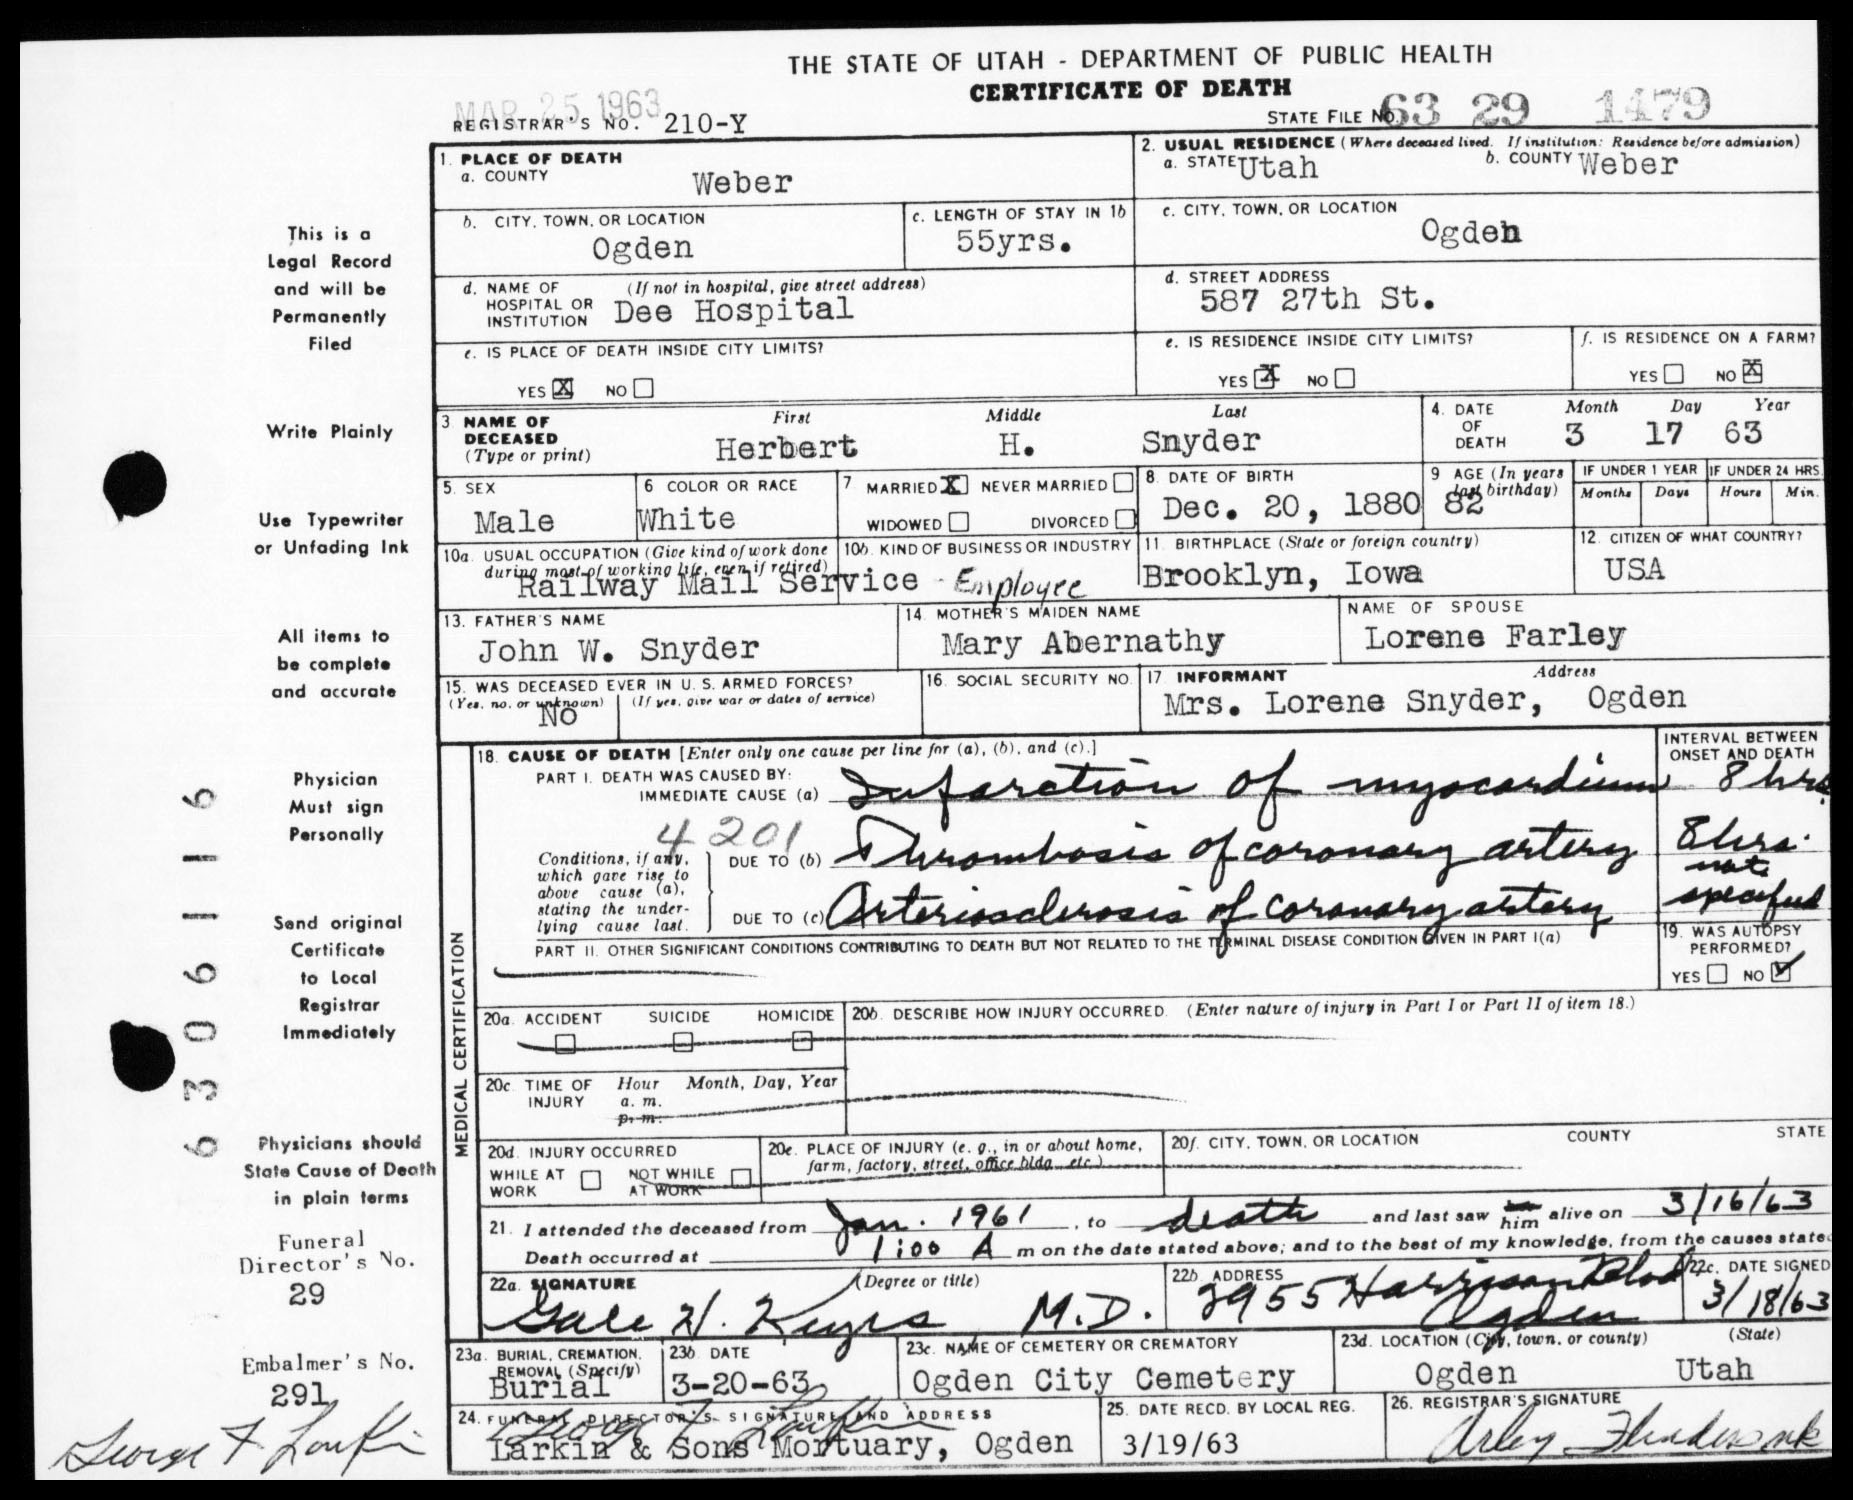 THE STATE OF UTAH - DEPARTMENT OF PUBLIC HEALTH
CERTIFICATE OF DEATH
MAR 25 1963
REGISTRAR'S NO. 210-Y
STATE FILE NO. 63 29 1479
1. PLACE OF DEATH
a. COUNTY
Weber
2. USUAL RESIDENCE (Where deceased lived. If institution: Residence before admission)
a. STATE Utah
b. COUNTY Weber
b. CITY, TOWN, OR LOCATION
Ogden
c. LENGTH OF STAY IN 1b
55yrs.
c. CITY, TOWN, OR LOCATION
Ogden
d. NAME OF HOSPITAL OR INSTITUTION
(If not in hospital, give street address)
Dee Hospital
d. STREET ADDRESS
587 27th St.
e. IS PLACE OF DEATH INSIDE CITY LIMITS?
YES X NO
e. IS RESIDENCE INSIDE CITY LIMITS?
YES X NO
f. IS RESIDENCE ON A FARM?
YES NO X
3 NAME OF DECEASED
(Type or print)
First Middle Last
Herbert H. Snyder
4. DATE OF DEATH
Month Day Year
3 17 63
5. SEX
Male
6 COLOR OR RACE
White
7 MARRIED X NEVER MARRIED
WIDOWED DIVORCED
8. DATE OF BIRTH
Dec. 20, 1880
9 AGE (In years last birthday)
82
IF UNDER 1 YEAR
Months Days
IF UNDER 24 HRS.
Hours Min.
10a. USUAL OCCUPATION (Give kind of work done during most of working life, even if retired)
10b. KIND OF BUSINESS OR INDUSTRY
Railway Mail Service - Employee
11. BIRTHPLACE (State or foreign country)
Brooklyn, Iowa
12. CITIZEN OF WHAT COUNTRY?
USA
13. FATHER'S NAME
John W. Snyder
14. MOTHER'S MAIDEN NAME
Mary Abernathy
NAME OF SPOUSE
Lorene Farley
15. WAS DECEASED EVER IN U. S. ARMED FORCES?
(Yes, no, or unknown) (If yes, give war or dates of service)
No
16. SOCIAL SECURITY NO.
17. INFORMANT Address
Mrs. Lorene Snyder, Ogden
MEDICAL CERTIFICATION
18. CAUSE OF DEATH [Enter only one cause per line for (a), (b), and (c).]
INTERVAL BETWEEN ONSET AND DEATH
PART I. DEATH WAS CAUSED BY:
IMMEDIATE CAUSE (a) Infarction of myocardium 8 hrs.
4201
Conditions, if any, which gave rise to above cause (a), stating the underlying cause last.
DUE TO (b) Thrombosis of coronary artery 8 hrs.
DUE TO (c) Arteriosclerosis of coronary artery not specified
PART II. OTHER SIGNIFICANT CONDITIONS CONTRIBUTING TO DEATH BUT NOT RELATED TO THE TERMINAL DISEASE CONDITION GIVEN IN PART I(a)
19. WAS AUTOPSY PERFORMED?
YES NO ✓
20a. ACCIDENT SUICIDE HOMICIDE
20b. DESCRIBE HOW INJURY OCCURRED. (Enter nature of injury in Part I or Part II of item 18.)
20c. TIME OF INJURY
Hour Month, Day, Year
a. m.
p. m.
20d. INJURY OCCURRED
WHILE AT WORK NOT WHILE AT WORK
20e. PLACE OF INJURY (e. g., in or about home, farm, factory, street, office bldg., etc.)
20f. CITY, TOWN, OR LOCATION COUNTY STATE
21. I attended the deceased from Jan. 1961, to death and last saw him alive on 3/16/63
Death occurred at 1:00 A m on the date stated above; and to the best of my knowledge, from the causes state
22a. SIGNATURE (Degree or title)
Gale H. Keyes M.D.
22b. ADDRESS
2955 Harrison Blvd
Ogden
22c. DATE SIGNED
3/18/63
23a. BURIAL, CREMATION, REMOVAL (Specify)
Burial
23b. DATE
3-20-63
23c. NAME OF CEMETERY OR CREMATORY
Ogden City Cemetery
23d. LOCATION (City, town, or county) (State)
Ogden Utah
24. FUNERAL DIRECTOR'S SIGNATURE AND ADDRESS
George F Larkin
Larkin & Sons Mortuary, Ogden
25. DATE RECD. BY LOCAL REG.
3/19/63
26. REGISTRAR'S SIGNATURE
Arley
This is a
Legal Record
and will be
Permanently
Filed
Write Plainly
Use Typewriter
or Unfading Ink
All items to
be complete
and accurate
Physician
Must sign
Personally
Send original
Certificate
to Local
Registrar
Immediately
Physicians should
State Cause of Death
in plain terms
Funeral
Director's No.
29
Embalmer's No.
291
George F Larkin
6306116